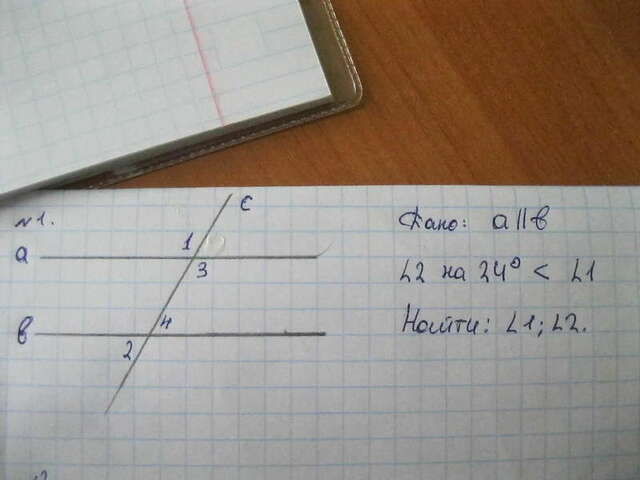 N1.
c
Дано: a||в
1
a
3
∠2 на 24° < ∠1
4
Найти: ∠1; ∠2.
в
2